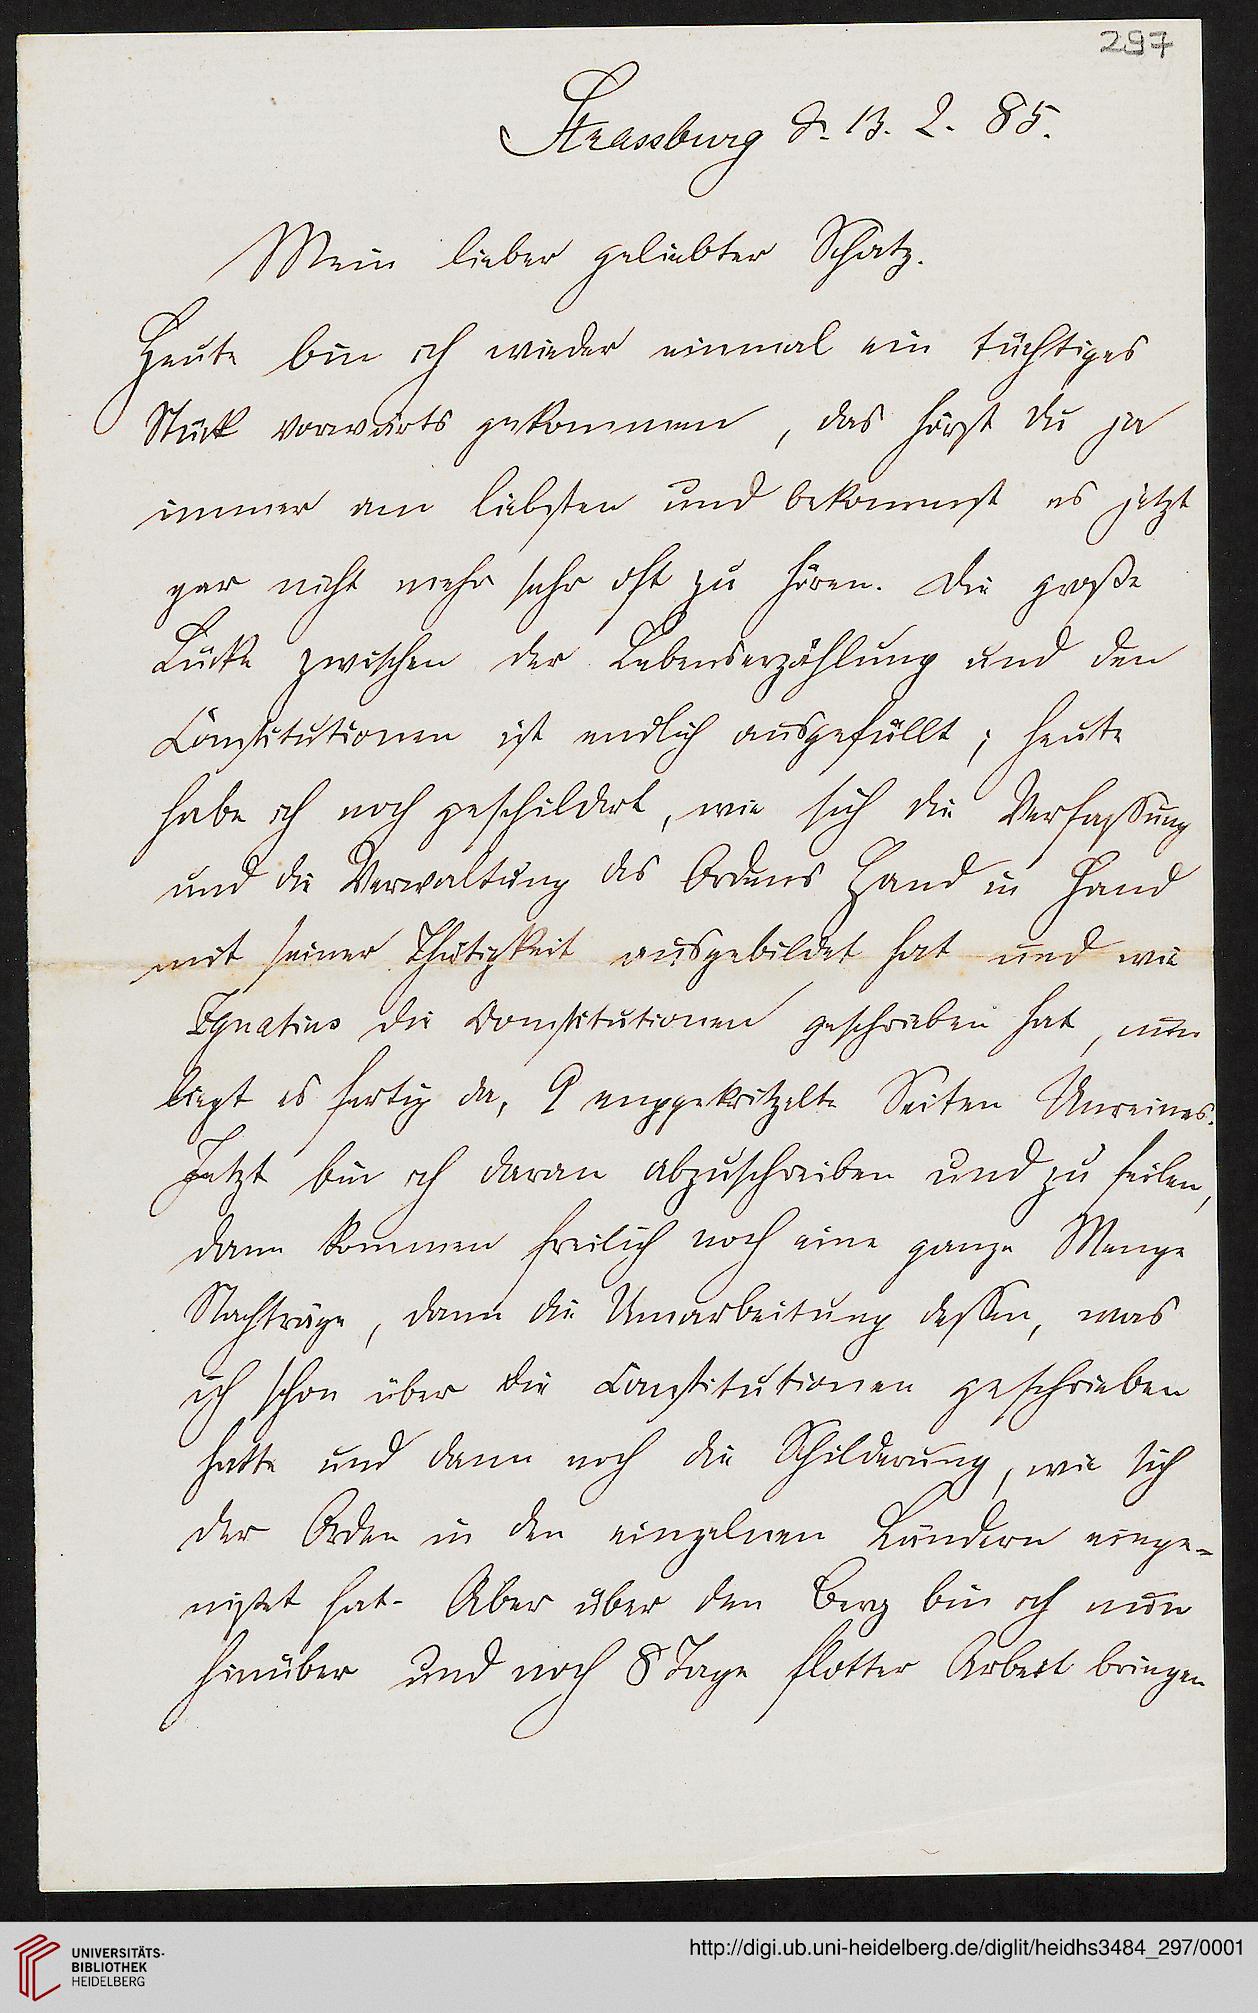 297
Strassburg d. 13. 2. 85.
Mein lieber geliebter Schatz.
Heute bin ich wieder einmal ein tüchtiges
Stück vorwärts gekommen, das hörst Du ja
immer am liebsten und bekommst es jetzt
gar nicht mehr sehr oft zu hören. Die große
Lücke zwischen der Lebenserzählung und den
Constitutionen ist endlich ausgefüllt; heute
habe ich noch geschildert, wie sich die Verfassung
und die Verwaltung des Ordens Hand in Hand
mit seiner Thätigkeit ausgebildet hat und wie
Ignatius die Constitutionen geschrieben hat, nun
liegt es fertig da, 9 enggekritzelte Seiten Unreines.
Jetzt bin ich daran abzuschreiben und zu feilen,
dann kommen freilich noch eine ganze Menge
Nachträge, dann die Umarbeitung dessen, was
ich schon über die Constitutionen geschrieben
hatte und dann noch die Schilderung, wie sich
der Orden in den einzelnen Ländern einge-
nistet hat. Aber über den Berg bin ich nun
hinüber und noch 8 Tage flotter Arbeit bringen
UNIVERSITÄTS-
BIBLIOTHEK
HEIDELBERG
http://digi.ub.uni-heidelberg.de/diglit/heidhs3484_297/0001